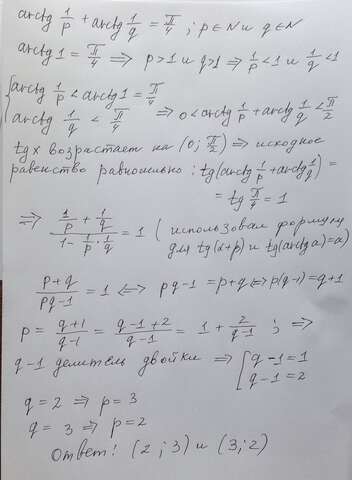 arctg 1/p + arctg 1/q = π/4 ; p∈N и q∈N
arctg 1 = π/4 ⇒ p>1 и q>1 ⇒ 1/p<1 и 1/q<1
{ arctg 1/p < arctg 1 = π/4
arctg 1/q < π/4 ⇒ 0<arctg 1/p + arctg 1/q < π/2
tg x возрастает на (0; π/2) ⇒ исходное
равенство равносильно: tg(arctg 1/p + arctg 1/q) =
= tg π/4 = 1
⇒ (1/p + 1/q)/(1 - 1/p · 1/q) = 1 ( использовал формулы
для tg(α+β) и tg(arctg a)=a)
(p+q)/(pq-1) = 1 ⇔ pq-1 = p+q ⇔ p(q-1) = q+1
p = (q+1)/(q-1) = (q-1+2)/(q-1) = 1 + 2/(q-1) ; ⇒
q-1 делитель двойки ⇒ [ q-1=1
q-1=2
q=2 ⇒ p=3
q= 3 ⇒ p=2
Ответ! (2 ; 3) и (3; 2)